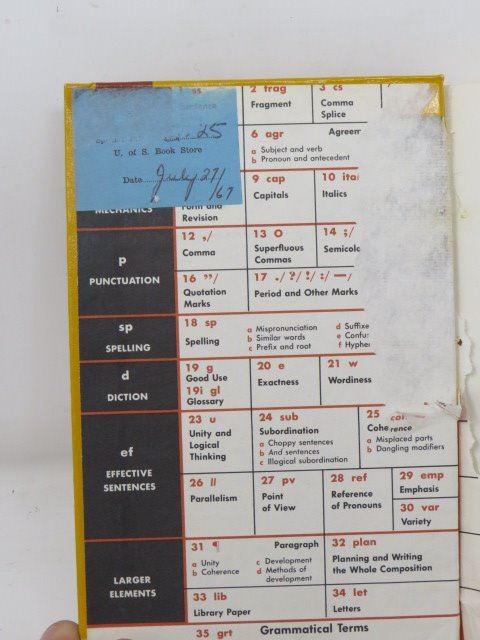 2 frag
Fragment
3 cs
Comma
Splice
25
U. of S. Book Store
Date July 27/
/67
6 agr
Agreem
a Subject and verb
b Pronoun and antecedent
MECHANICS
Form and
Revision
9 cap
Capitals
10 ital
Italics
p
PUNCTUATION
12 ,/
Comma
13 O
Superfluous
Commas
14 ;/
Semicolo
16 ”/
Quotation
Marks
17 ./ ?/ !/ :/ —/
Period and Other Marks
sp
SPELLING
18 sp
Spelling
a Mispronunciation
b Similar words
c Prefix and root
d Suffixe
e Confu
f Hyphe
d
DICTION
19 g
Good Use
19i gl
Glossary
20 e
Exactness
21 w
Wordiness
ef
EFFECTIVE
SENTENCES
23 u
Unity and
Logical
Thinking
24 sub
Subordination
a Choppy sentences
b And sentences
c Illogical subordination
25
Coherence
a Misplaced parts
b Dangling modifiers
26 //
Parallelism
27 pv
Point
of View
28 ref
Reference
of Pronouns
29 emp
Emphasis
30 var
Variety
LARGER
ELEMENTS
31 ¶
Paragraph
a Unity
b Coherence
c Development
d Methods of
development
32 plan
Planning and Writing
the Whole Composition
33 lib
Library Paper
34 let
Letters
35 grt
Grammatical Terms